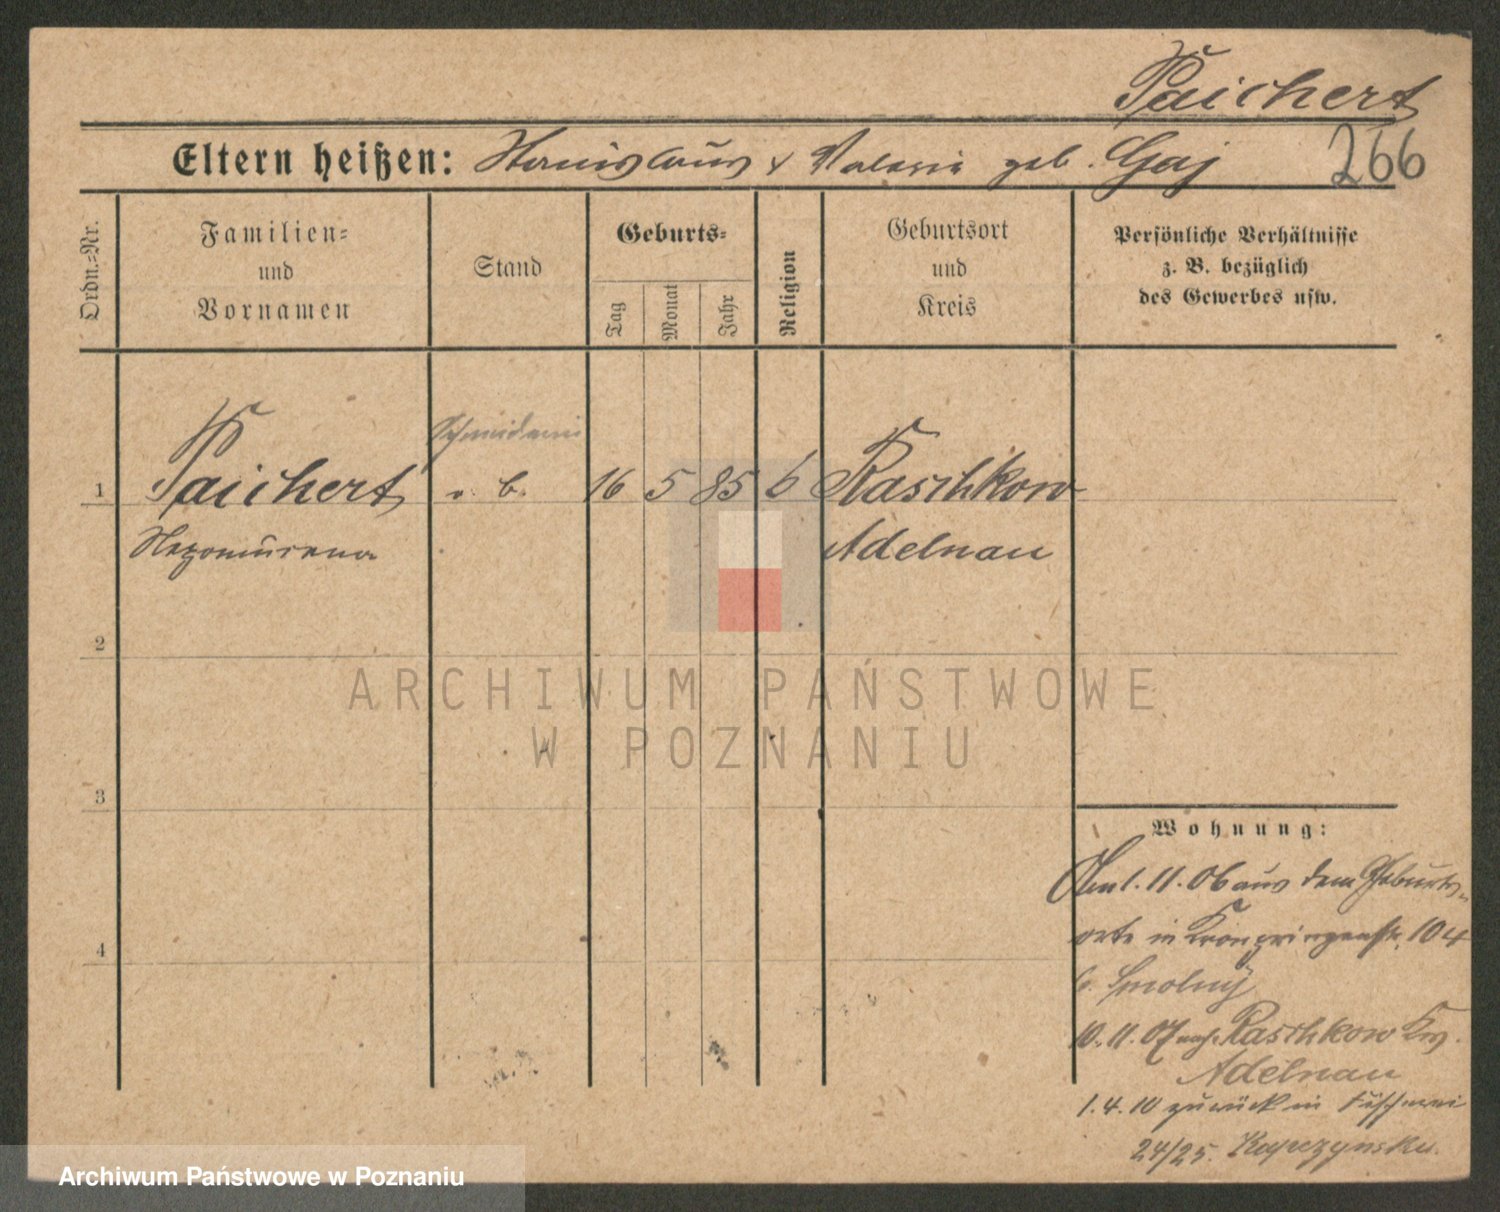 Paichert
266
Eltern heißen: Stanislaus & Valeria geb. Gaj
Ordn.=Nr.
Familien=
und
Vornamen
Stand
Geburts=
Tag
Monat
Jahr
Religion
Geburtsort
und
Kreis
Persönliche Verhältnisse
z. B. bezüglich
des Gewerbes usw.
1 Paichert 16 5 85 Raschkow
Nepomucena Adelnau
2
3
4
Wohnung:
Am 1. 11. 06 aus dem Geburts-
orte in Kronprinzenstr. 104
b. Smolny
10. 11. 07 nach Raschkow Krs.
Adelnau
1. 4. 10 zurück in
24/25.
ARCHIWUM PAŃSTWOWE
W POZNANIU
Archiwum Państwowe w Poznaniu